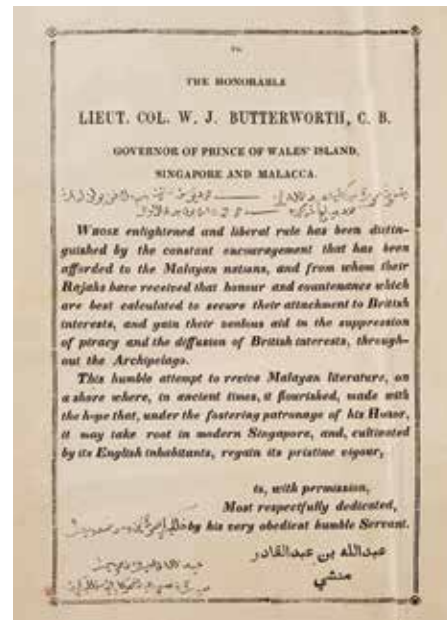 TO
THE HONORABLE
LIEUT. COL. W. J. BUTTERWORTH, C. B.
GOVERNOR OF PRINCE OF WALES' ISLAND,
SINGAPORE AND MALACCA.
WHOSE enlightened and liberal rule has been distin-
guished by the constant encouragement that has been
afforded to the Malayan nations, and from whom their
Rajahs have received that honour and countenance which
are best calculated to secure their attachment to British
interests, and gain their zealous aid in the suppression
of piracy and the diffusion of British interests, through-
out the Archipelago.
This humble attempt to revive Malayan literature, on
a shore where, in ancient times, it flourished, made with
the hope that, under the fostering patronage of his Honor,
it may take root in modern Singapore, and, cultivated
by its English inhabitants, regain its pristine vigour,
is, with permission,
Most respectfully dedicated,
by his very obedient humble Servant.
عبدالله بن عبدالقادر
منشي